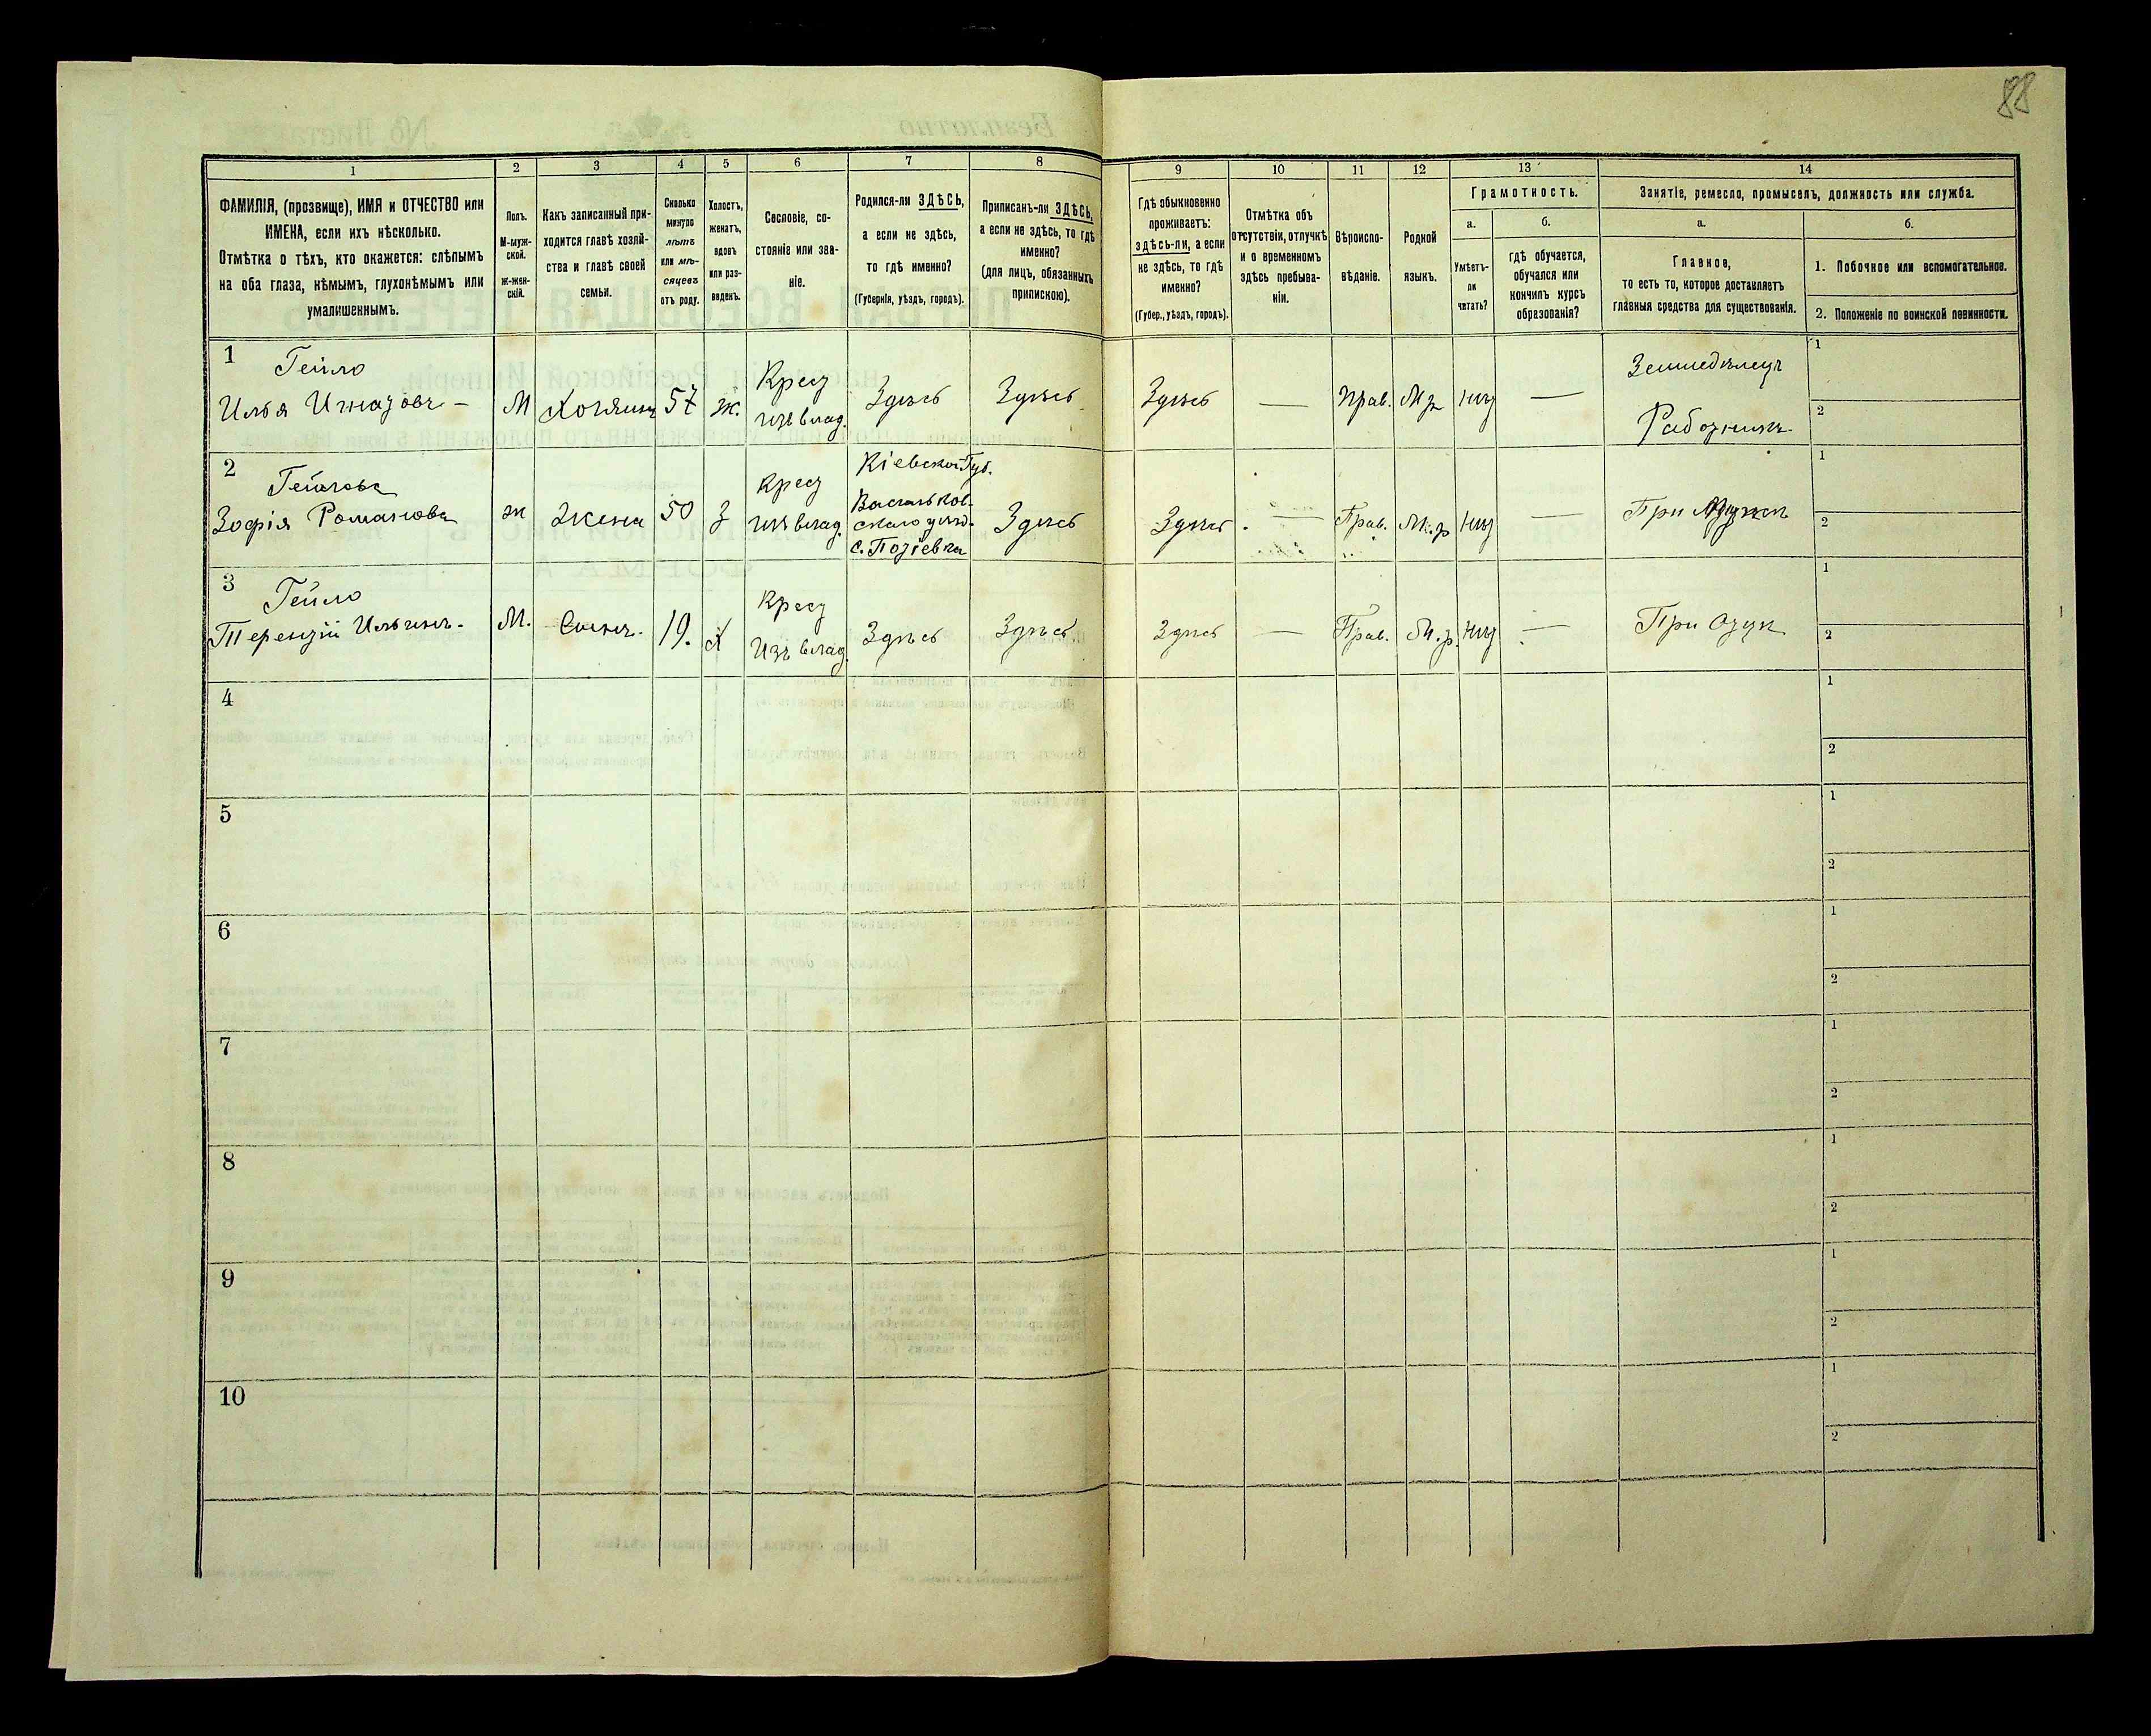 88
1
2
3
4
5
6
7
8
9
10
11
12
13
14
ФАМИЛІЯ, (прозвище), ИМЯ и ОТЧЕСТВО или
ИМЕНА, если ихъ нѣсколько.
Отмѣтка о тѣхъ, кто окажется: слѣпымъ
на оба глаза, нѣмымъ, глухонѣмымъ или
умалишеннымъ.
Полъ.
М-муж-
ской.
ж-жен-
скій.
Какъ записанный при-
ходится главѣ хозяй-
ства и главѣ своей
семьи.
Сколько
минуло
лѣтъ
или мѣ-
сяцевъ
отъ роду.
Холостъ,
женатъ,
вдовъ
или раз-
веденъ.
Сословіе, со-
стояніе или зва-
ніе.
Родился-ли ЗДѢСЬ,
а если не здѣсь,
то гдѣ именно?
(Губернія, уѣздъ, городъ).
Приписанъ-ли ЗДѢСЬ,
а если не здѣсь, то гдѣ
именно?
(для лицъ, обязанныхъ
припискою).
Гдѣ обыкновенно
проживаетъ:
здѣсь-ли, а если
не здѣсь, то гдѣ
именно?
(Губер., уѣздъ, городъ).
Отмѣтка объ
отсутствіи, отлучкѣ
и о временномъ
здѣсь пребыва-
ніи.
Вѣроиспо-
вѣданіе.
Родной
языкъ.
Грамотность.
а.
Умѣетъ-
ли
читать?
б.
гдѣ обучается,
обучался или
кончилъ курсъ
образованія?
Занятіе, ремесло, промыселъ, должность или служба.
а.
Главное,
то есть то, которое доставляетъ
главныя средства для существованія.
б.
1. Побочное или вспомогательное.
2. Положеніе по воинской повинности.
1
Гейло
Илья Игнатовъ -
М
Хозяинъ
57
ж.
Крест
изъ влад.
Здѣсь
Здѣсь
Здѣсь
—
Прав.
М р
нѣт
—
Земледѣлецъ
Работникъ
1
2
2
Гейлова
Зофія Романова
ж
Жена
50
З
Крест
изъ влад.
Кіевской Губ.
Васильков-
скаго уѣзд.
с.
Здѣсь
Здѣсь
—
Прав.
М. р
нѣт
—
При
1
2
3
Гейло
Терентій Ильинъ.
М.
Сынъ.
19.
Х
Крест
Изъ влад.
Здѣсь
Здѣсь
Здѣсь
—
Прав.
М. р.
нѣт
—
При
1
2
4
1
2
5
1
2
6
1
2
7
1
2
8
1
2
9
1
2
10
1
2